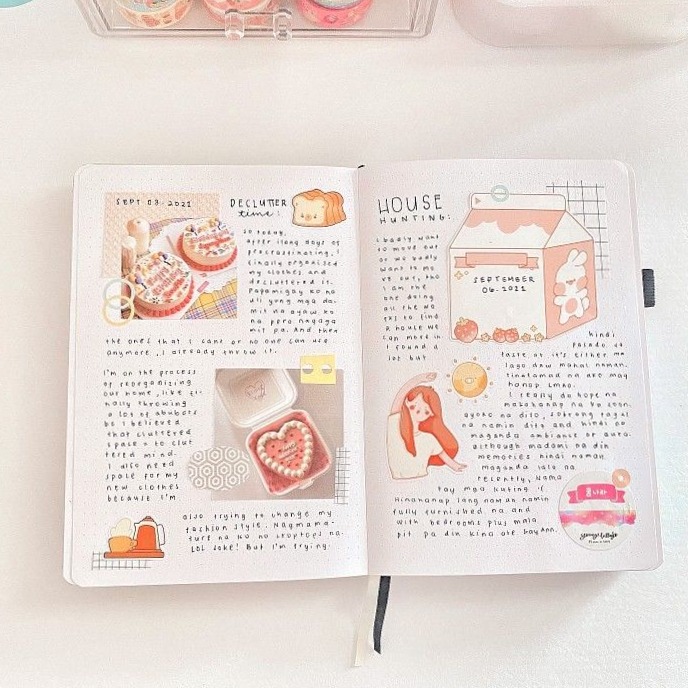 SEPT 03. 2021
DECLUTTER
time:
so today,
after ilang days of
procrastinating, I
finally organised
my clothes and
decluttered it.
Papamigay ko na
uli yung mga da-
mit na ayaw ko
na pero nagaga
mit pa. And then
the ones that I cant or no one can use
anymore, I already throw it.
I'm on the process
of reorganizing
our home, like fi-
nally throwing
a lot of abubots
bc I believed
that cluttered
space = to clut
tered mind.
I also need
space for my
new clothes
because I'm
also trying to change my
fashion style. Nagmama-
ture na ko no croptops na.
LOL joke! But I'm trying.
HOUSE
HUNTING:
I badly want
to move out
or we badly
want to mo
ve out, tho
I am the
one doing
all the wo
rks to find
a house we
can move in.
I found a
lot but
SEPTEMBER
06.2021
hindi
pasado sa
taste at it's either ma
lago daw mahal naman.
tinatamad na are may
hanap lmao.
I really do hope na
makahanap na to soon.
ayoko na dito, sobrang tagal
na namin dito and hindi na
maganda ambiance or aura.
although madami na din
memories hindi naman
maganda lalo na
recently, nama
tay mga kuting :(
Hinahanap lang naman namin
fully furnished na and
with bedrooms plus mala
pit pa din kina ate kayAnn.